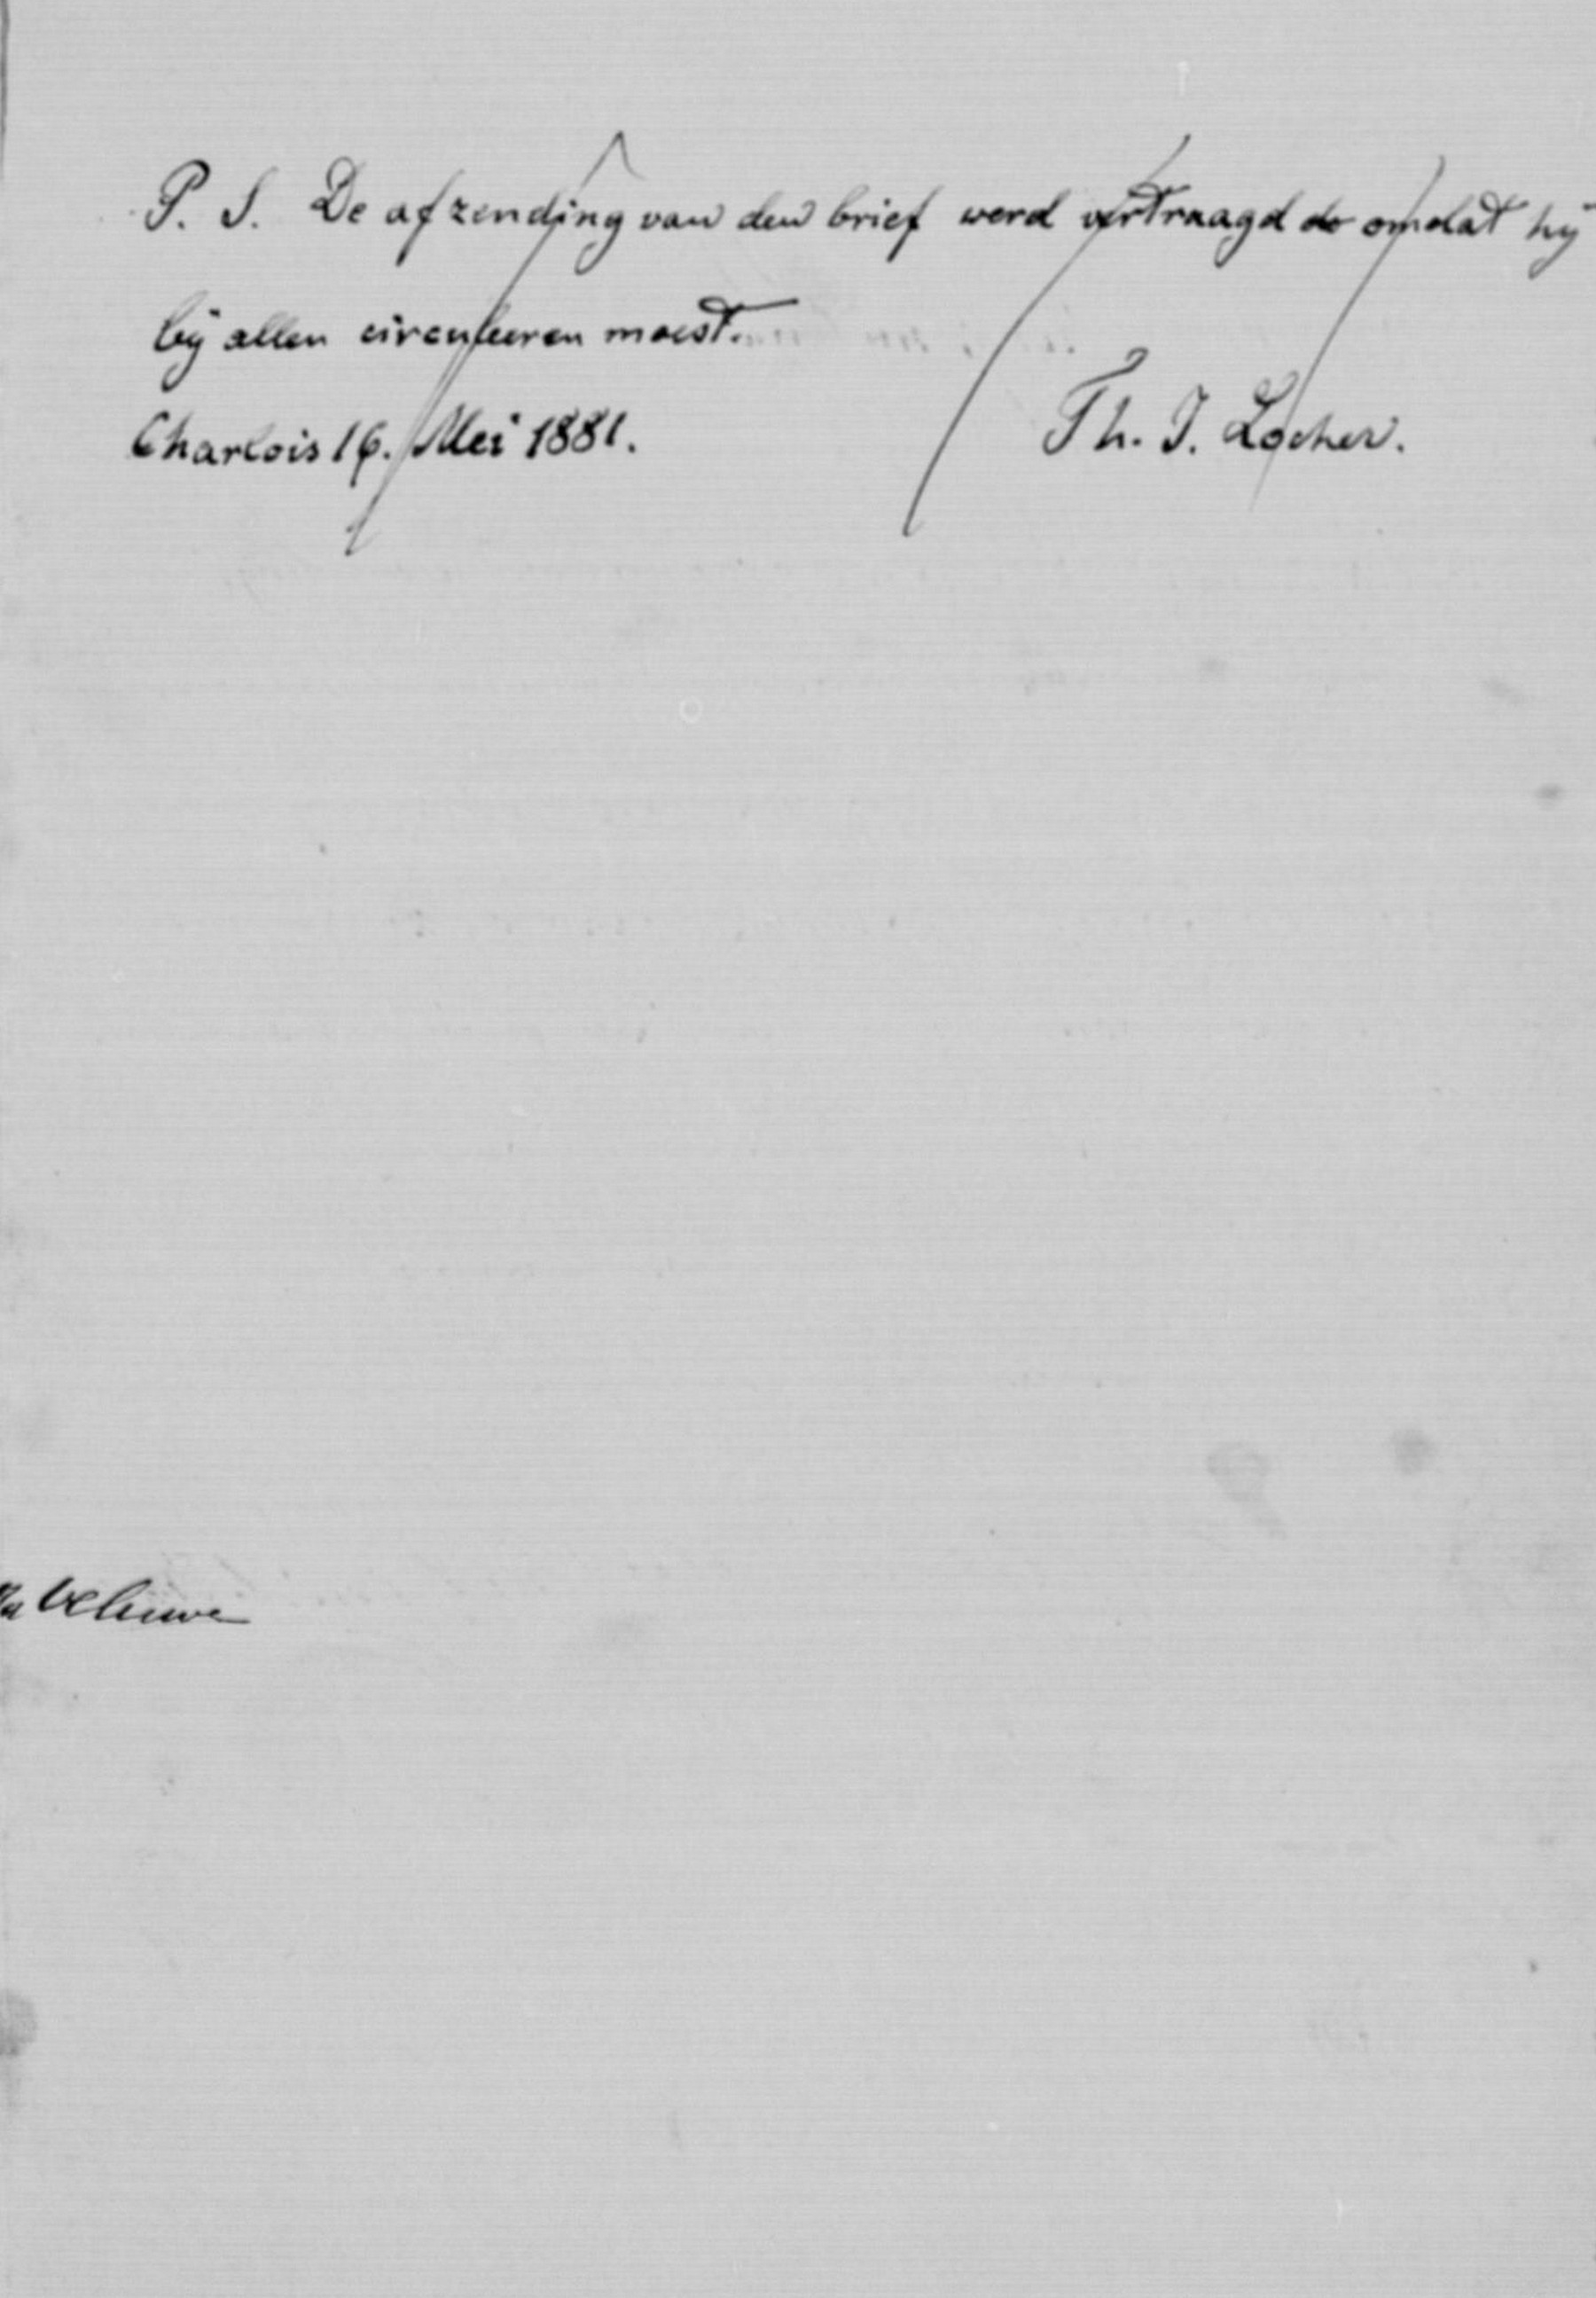 P. S. De afzending van den brief werd vertraagd do omdat hij
bij allen circuleeren moest.
Charlois 16. Mei 1881.
Th. J. Locher.
Veluwe